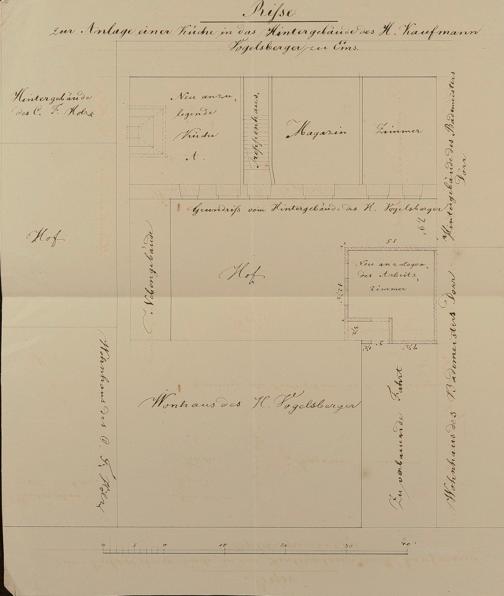 Risse
zur Anlage einer Küche in das Hintergebäude des H. Kaufmann
Vogelsberger zu Ems.
Hintergebäude
des C. F.
Neu anzu-
legende
Küche
A.
Treppenhaus
Magazin
Zimmer
Hintergebäude des Bademeisters
Dorr
Grundriß vom Hintergebäude des H. Vogelsberger
Hof
Nebengebäude
Hof
Neu anzulegen-
des Arbeits-
zimmer
Wohnhaus des C. F.
Wonhaus des H. Vogelsberger
Zu verbauende Fahrt
Wohnhaus des Bademeisters Dorr
0
5
10
20
30
40